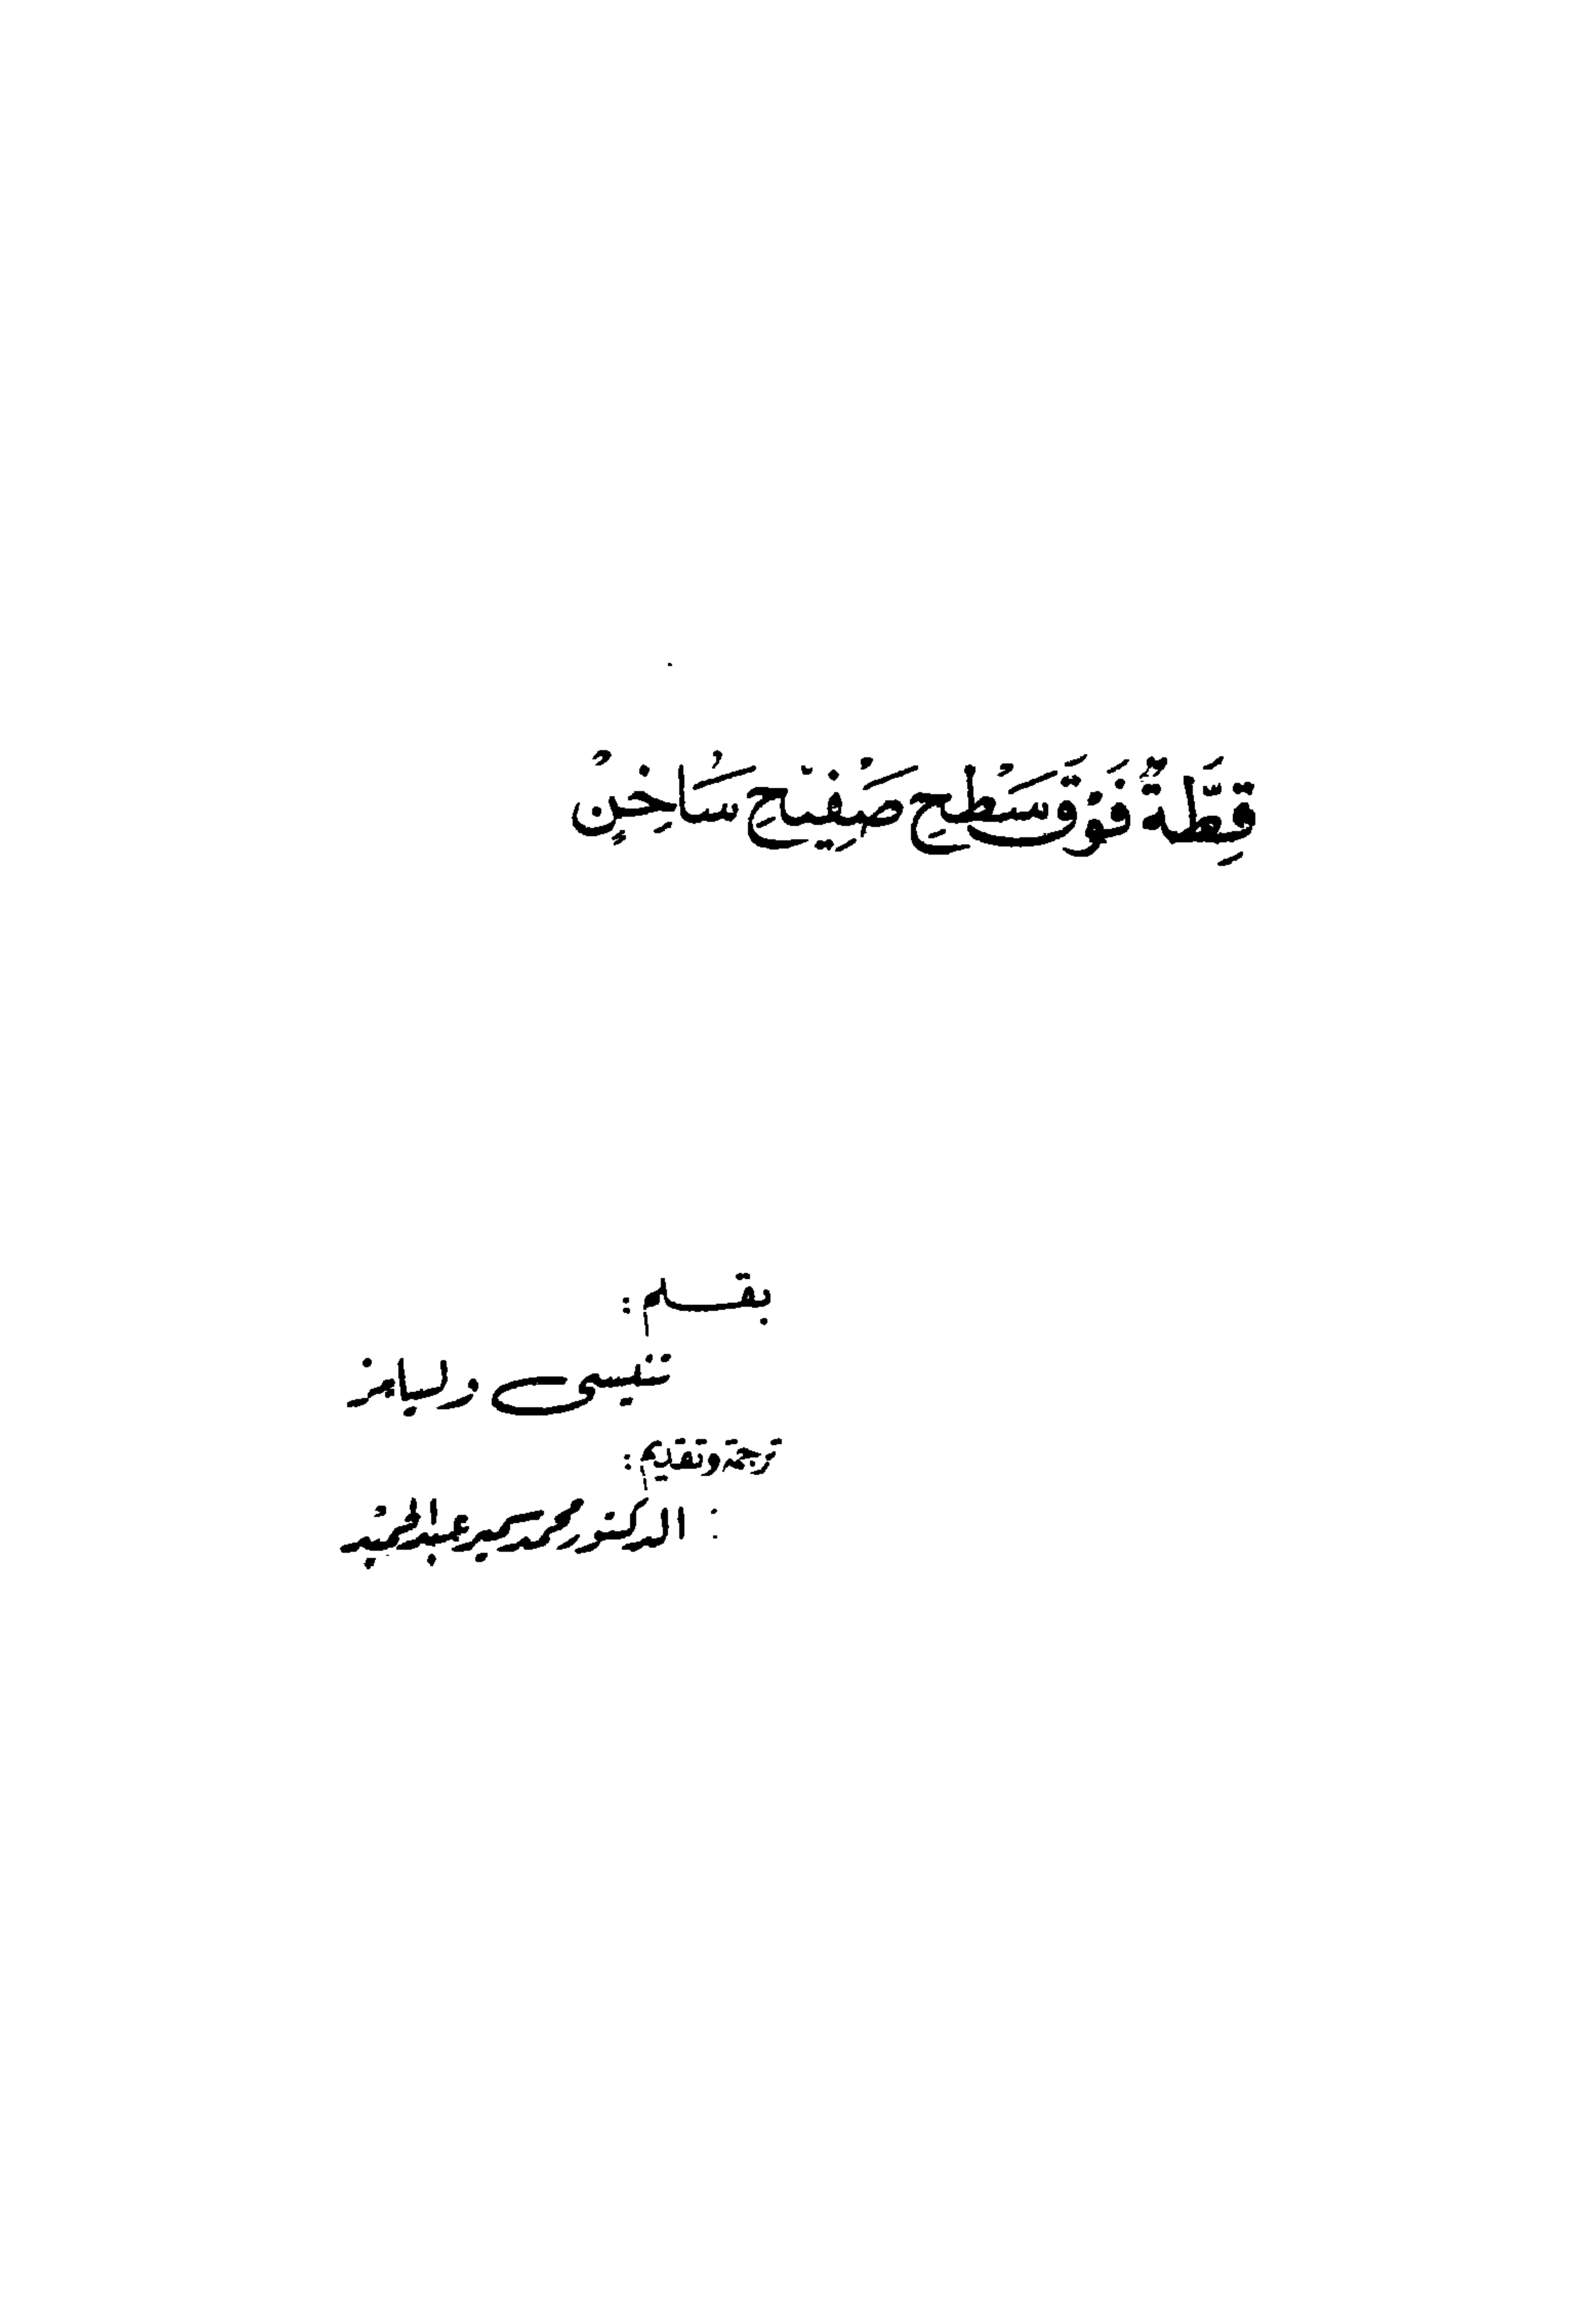 قِطَّةٌ فَوْقَ سَطْحِ صَفِيْحٍ سَاخِنٍ
بقلم :
تنيسى وليامز
ترجمة وتقديم :
: الدكتور محمد سمير عبد الحميد